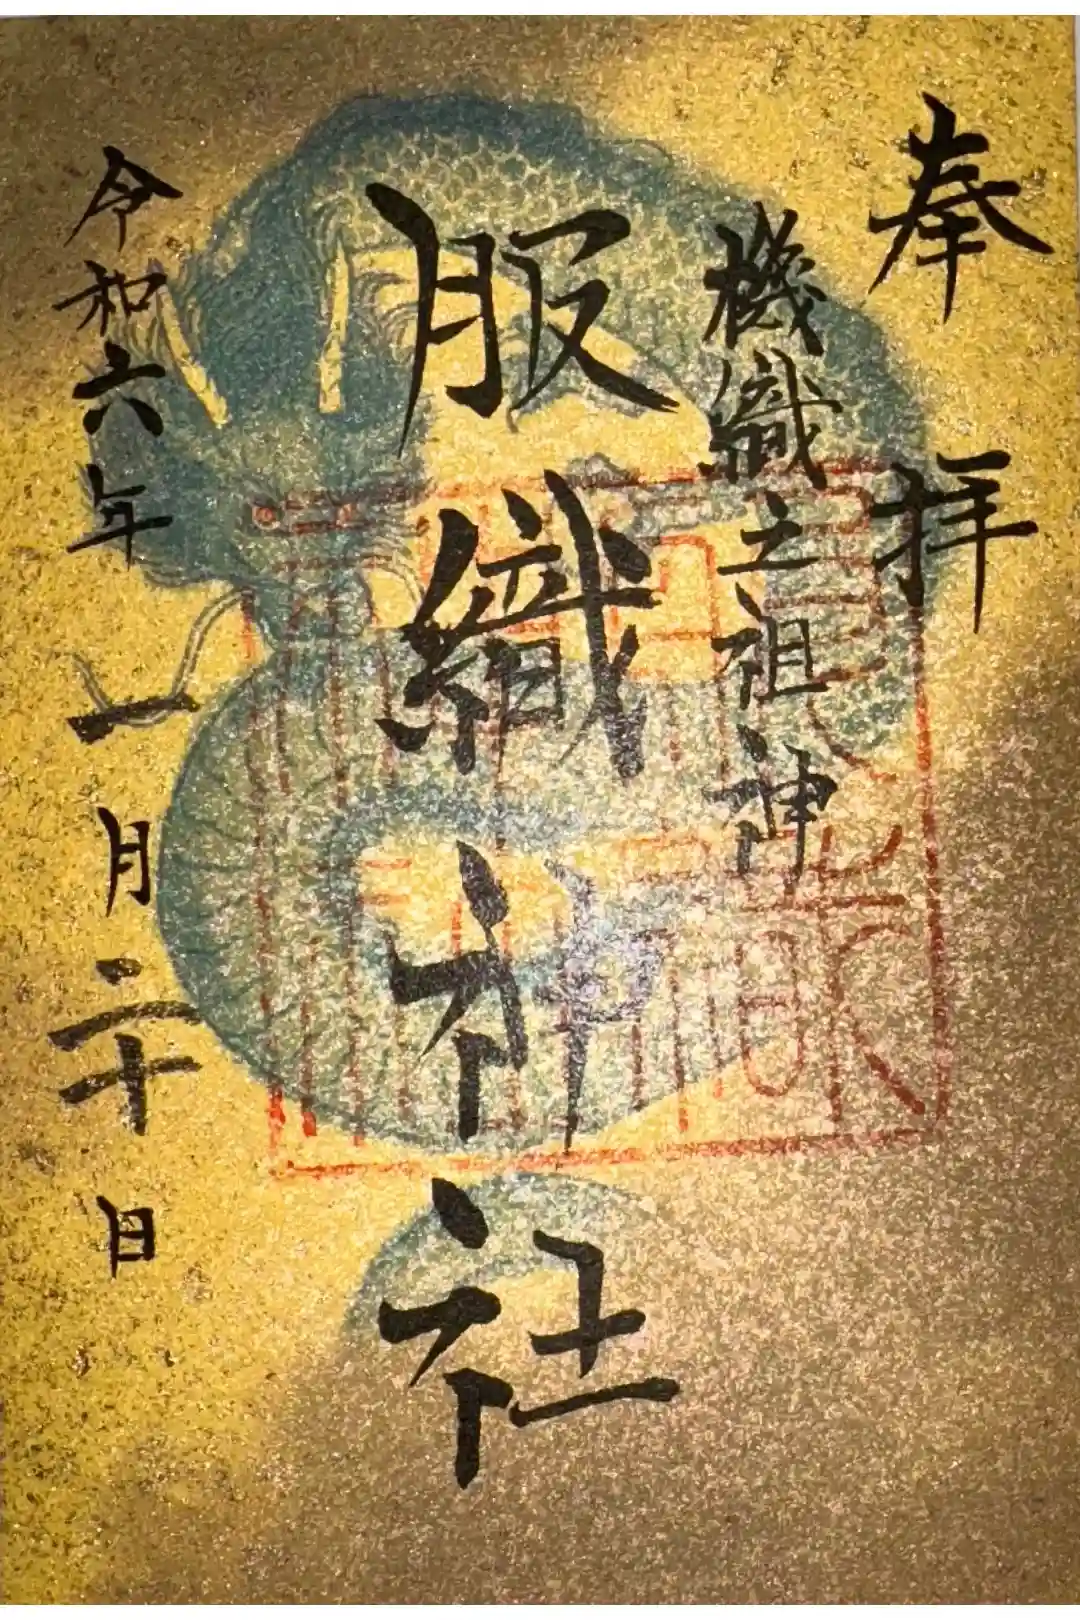 奉拝
機織之祖神
服織神社
令和六年一月二十日